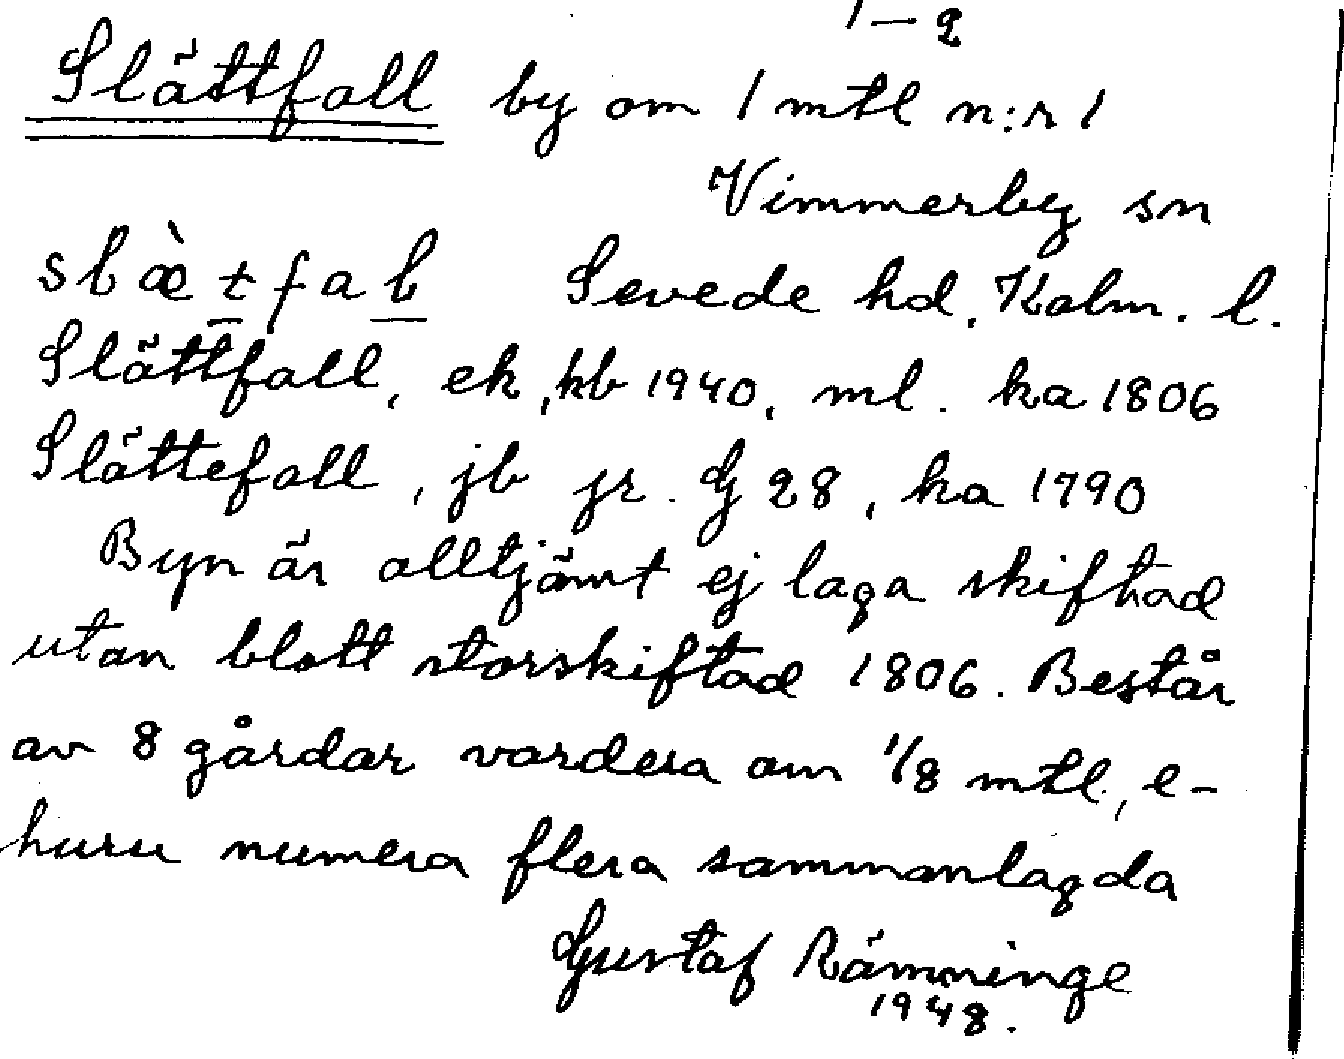 1–2
Slättfall by om 1 mtl n:r 1
Vimmerby sn
slæ̀tfal Sevede hd. Kalm. l.
Slättfall, ek, kb 1940, ml. ka 1806
Slättefall, jb jr. G 28, ka 1790
Byn är alltjämt ej laga skiftad
utan blott storskiftad 1806. Består
av 8 gårdar vardera om 1/8 mtl, e-
huru numera flera sammanlagda
Gustaf Rämninge
1948.